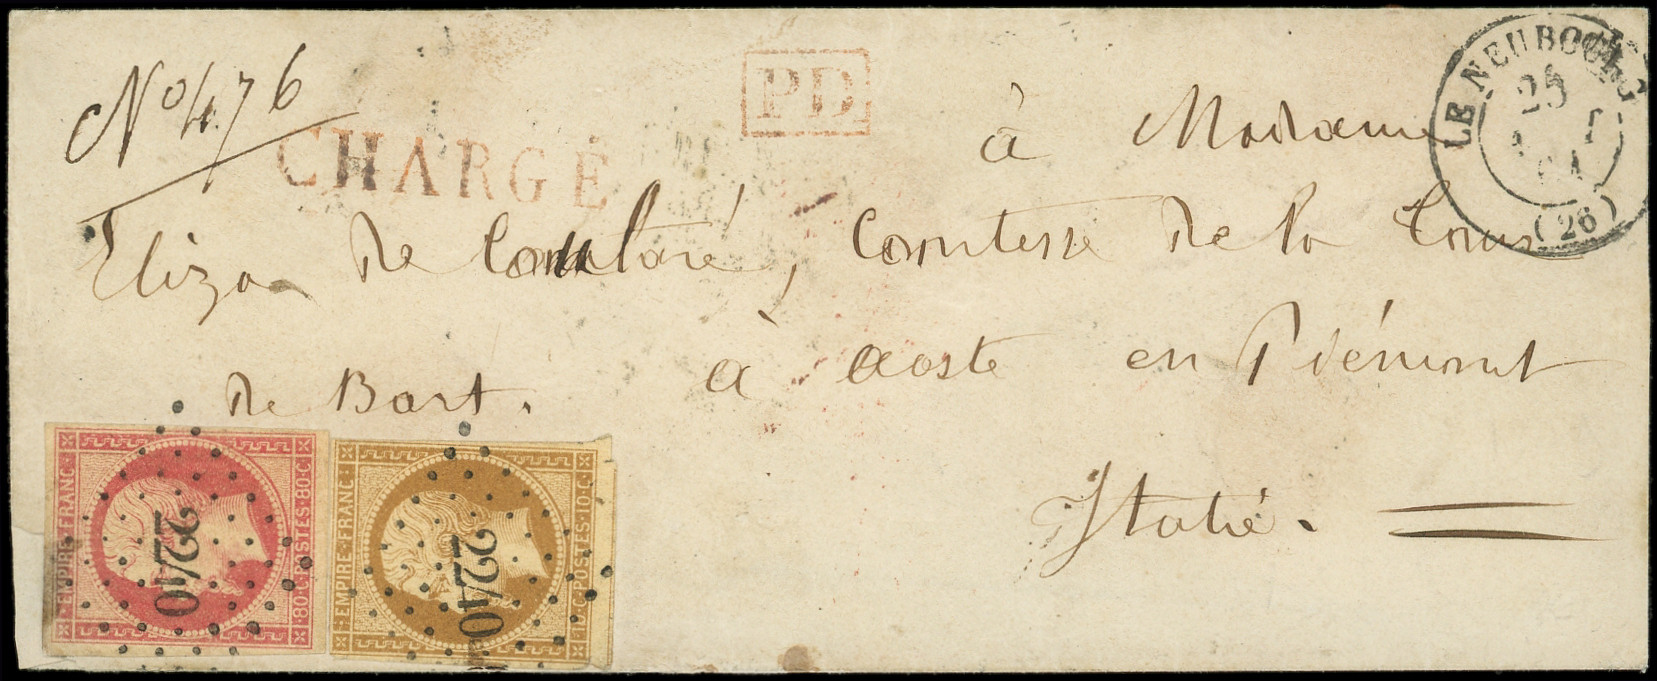 No 476
CHARGÉ
PD
LE NEUBOURG
25
(26)
à Madame
Eliza de , Comtesse de la Tour
de Bart. à Aoste en Piémont
Italie.
EMPIRE FRANC
80·C·POSTES·80·C
2240
EMPIRE FRANC
10·C·POSTES·10·C
2240